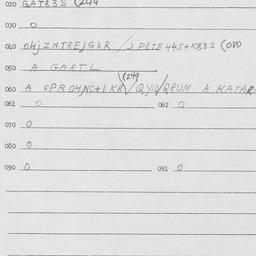 020 GAT83S (249
030 0
040 04jZNTREJG3R / J DLTE 44S+K83S (080
050 A GARTL
(249
060 A SPR04NS+1K8 / QYIN/QRUM A KATAR
061 0 062 0
070 0
080 0
090 0 091 0